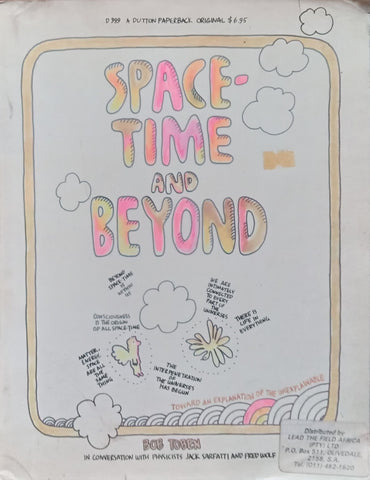 D399 A DUTTON PAPERBACK ORIGINAL $6.95
SPACE-
TIME
AND
BEYOND
BEYOND
SPACE-TIME
IS
WITHIN
US
WE ARE
INTIMATELY
CONNECTED
TO EVERY
PART OF
THE
UNIVERSES
CONSCIOUSNESS
IS THE ORIGIN
OF ALL SPACE-TIME
THERE IS
LIFE IN
EVERYTHING
MATTER,
ENERGY,
SPACE
ARE ALL
THE
SAME
THING
THE
INTERPENETRATION
OF THE
UNIVERSES
HAS BEGUN
TOWARD AN EXPLANATION OF THE UNEXPLAINABLE
BOB TOBEN
IN CONVERSATION WITH PHYSICISTS JACK SARFATTI AND FRED WOLF
Distributed by
LEAD THE FIELD AFRICA
(PTY) LTD.
P.O. Box 511, OLIVEDALE,
2158, S.A.
Tel. (011) 462-1620